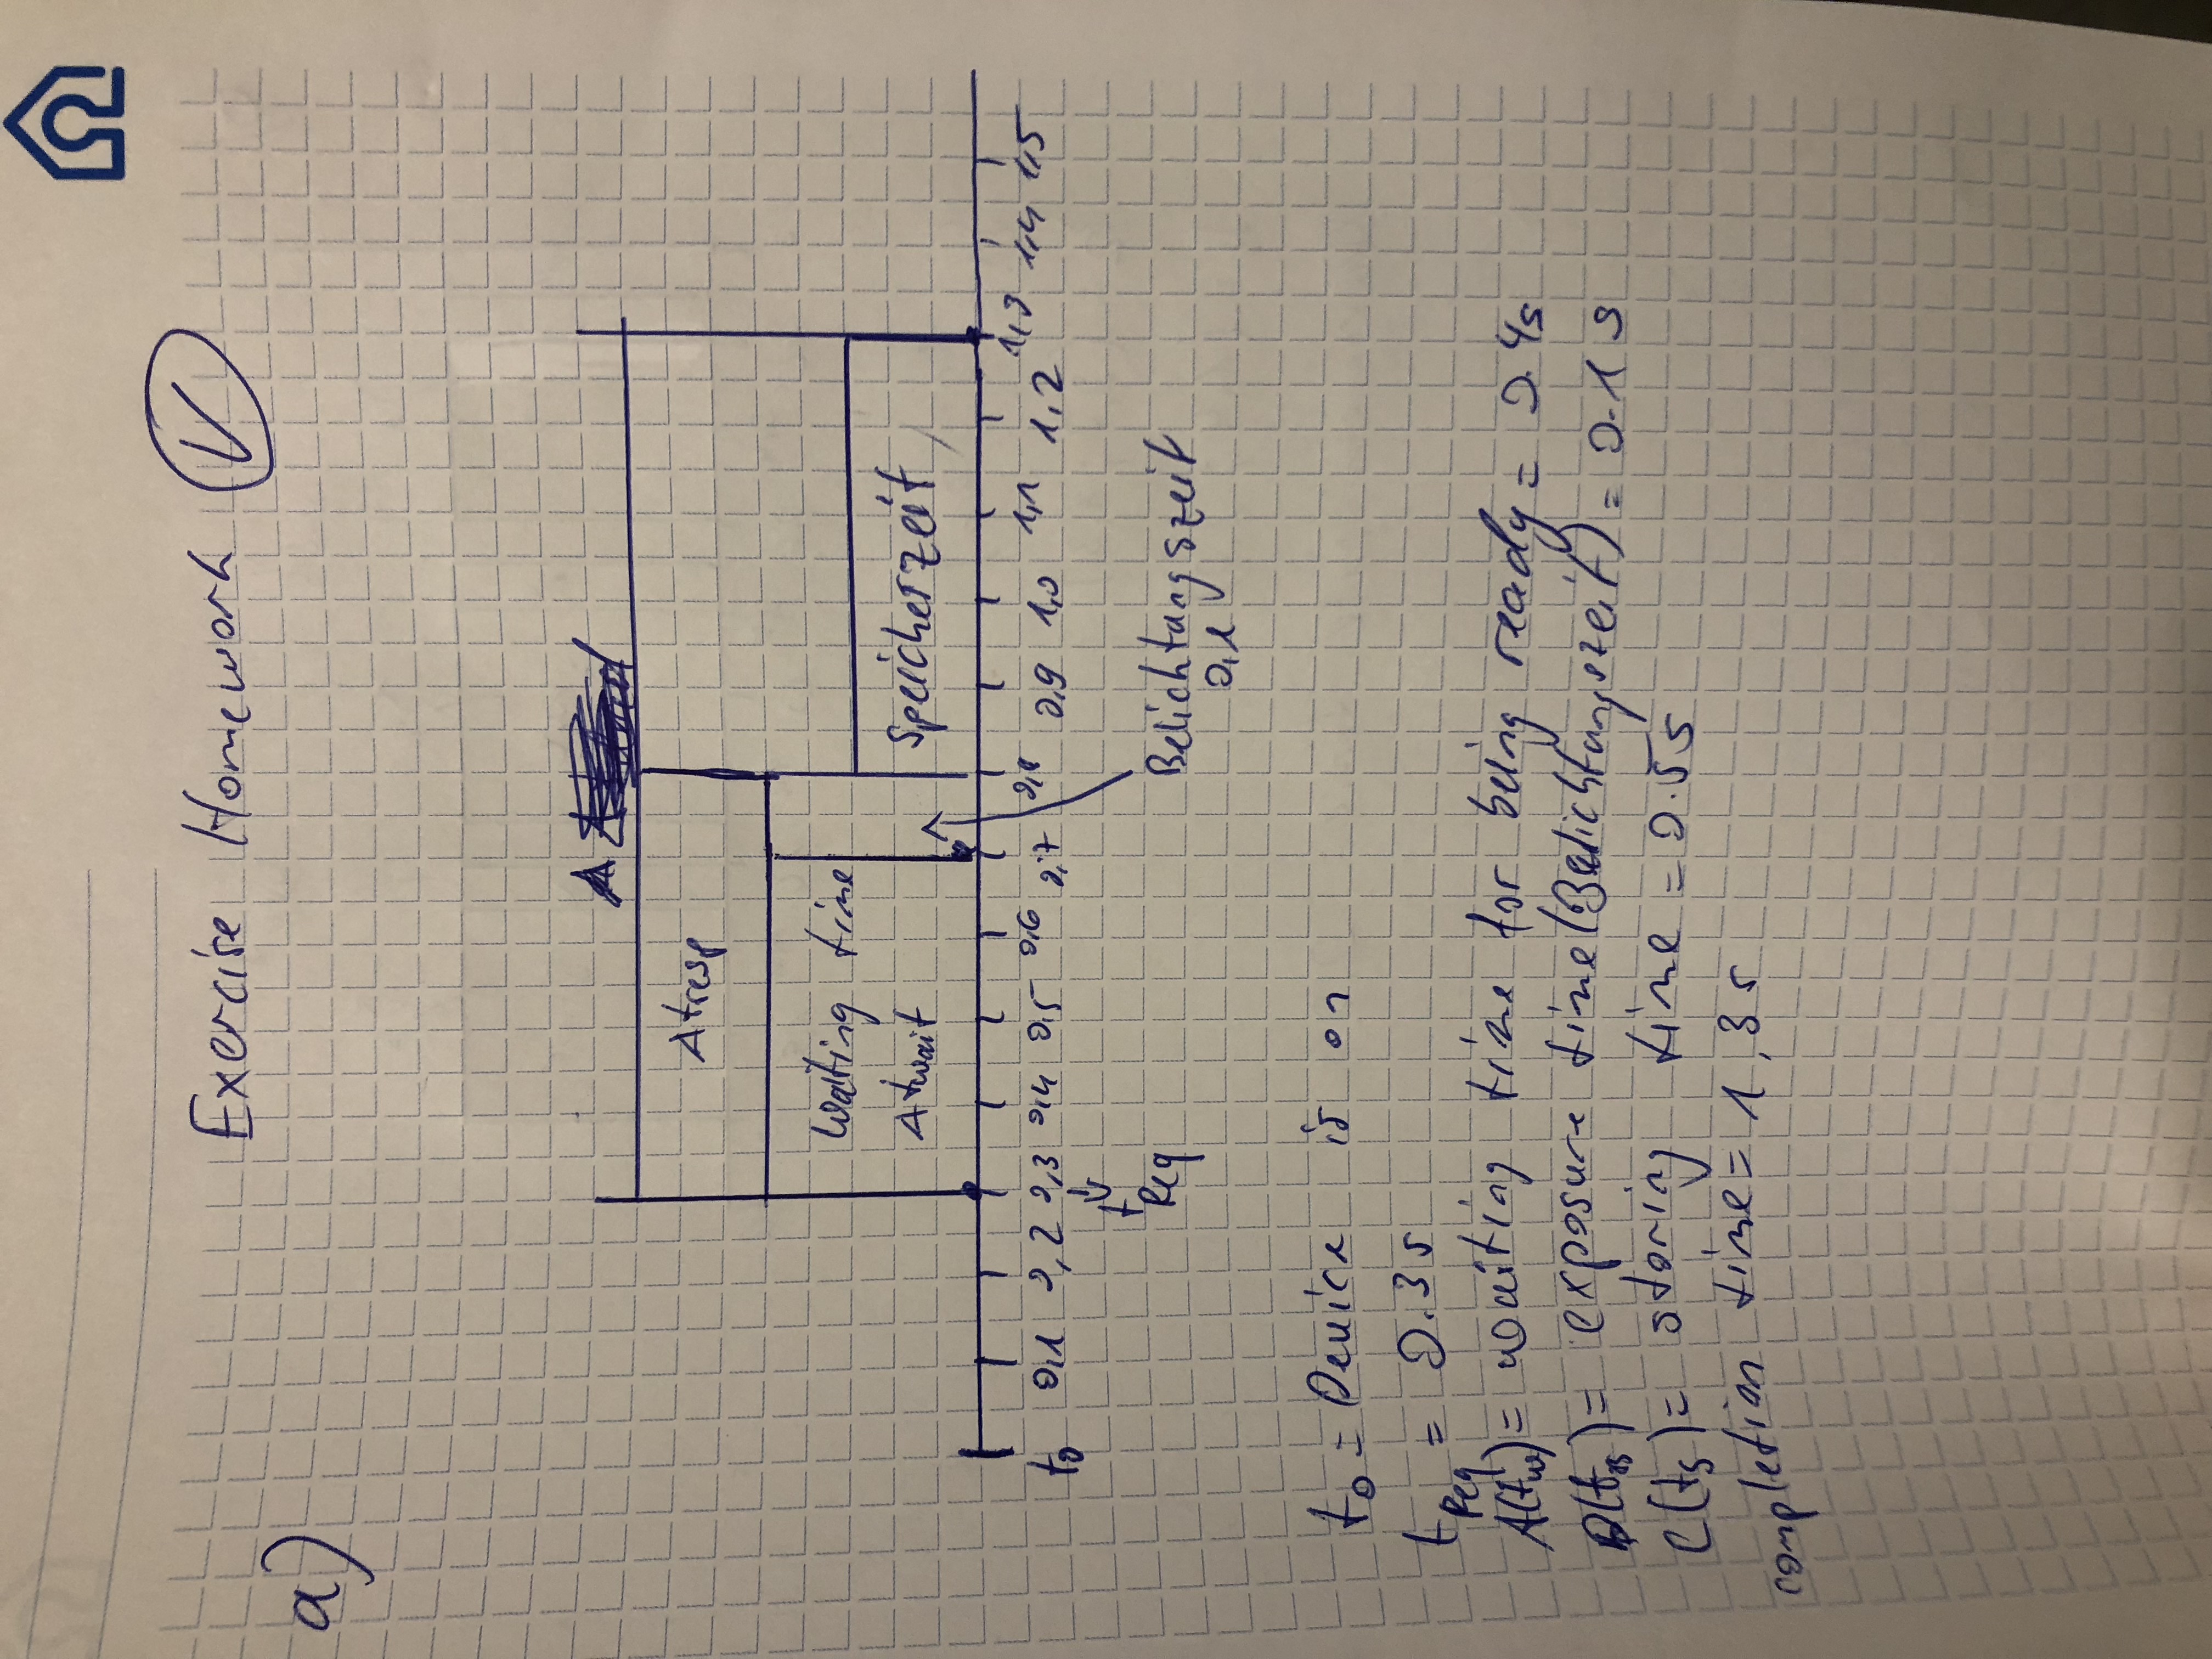 Exercise Homework V
a)
Δ
Δtresp
Waiting time
Δtwait
Speicherzeit
t0 0,1 0,2 0,3 0,4 0,5 0,6 0,7 0,8 0,9 1,0 1,1 1,2 1,3 1,4 1,5
tReq
Belichtungszeit
0,1
t0 = Device is on
tReq = 0.3s
Δ(tw) = waiting time for being ready = 0.4s
= exposure time (Belichtungszeit) = 0.1s
C(ts) = storing time = 0.5s
completion time = 1,3s